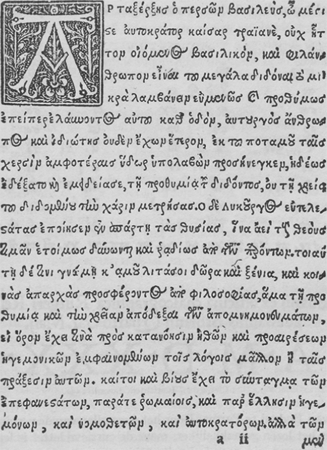 ΑΡΤΑΞΕΡΞΗΣ ὁ περσῶν βασιλεὺς, ὦ μέγιστε
αὐτοκράτορ καῖσαρ τραϊανὲ, οὐχ ἧτ
τον οἰόμενος βασιλικὸν, καὶ φιλάν
θρωπον εἶναι τοῦ μεγάλα διδόναι τὸ μι
κρὰ λαμβάνειν εὐμενῶς καὶ προθύμως
ἐπεί περ ἐλαύνοντος αὐτοῦ καθ᾽ ὁδὸν, αὐτουργὸς ἄνθρω
πος καὶ ἰδιώτης οὐδὲν ἔχων ἕτερον, ἐκ τοῦ ποταμοῦ ταῖς
χερσὶν ἀμφοτέραις ὕδωρ ὑπολαβὼν προσήνεγκεν, ἡδέως
ἐδέξατο καὶ ἐμειδίασε, τῇ προθυμίᾳ τοῦ διδόντος, οὐ τῇ χρείᾳ
τοῦ διδομένου τὴν χάριν μετρήσας. ὁ δὲ λυκοῦργος εὐτελε
στάτας ἐποίησεν ἐν σπάρτῃ τὰς θυσίας, ἵνα ἀεὶ τοὺς θεοὺς
τιμᾶν ἑτοίμως δύνωνται καὶ ῥαδίως ἀπὸ τῶν παρόντων. τοιαύ
τῃ δέ τινι γνώμῃ κἀμοῦ λιτά σοι δῶρα καὶ ξένια, καὶ κοι
νὰς ἀπαρχὰς προσφέροντος ἀπὸ φιλοσοφίας, ἅμα τῇ προ
θυμίᾳ καὶ τὴν χρείαν ἀπόδεξαι τῶν ἀπομνημονευμάτων,
εἰ ὅρον ἔχει τινὰ πρὸς κατανόησιν ἠθῶν καὶ προαιρέσεων
ἡγεμονικῶν ἐμφαινομένων τοῖς λόγοις μᾶλλον ἢ ταῖς
πράξεσιν αὐτῶν. καίτοι καὶ βίους ἔχει τὸ σύνταγμα τῶν
ἐπιφανεστάτων, παρά τε ῥωμαίοις, καὶ παρ᾽ ἕλλησιν ἡγε
μόνων, καὶ νομοθετῶν, καὶ αὐτοκρατόρων, ἀλλὰ τῶν
a ii μὲν